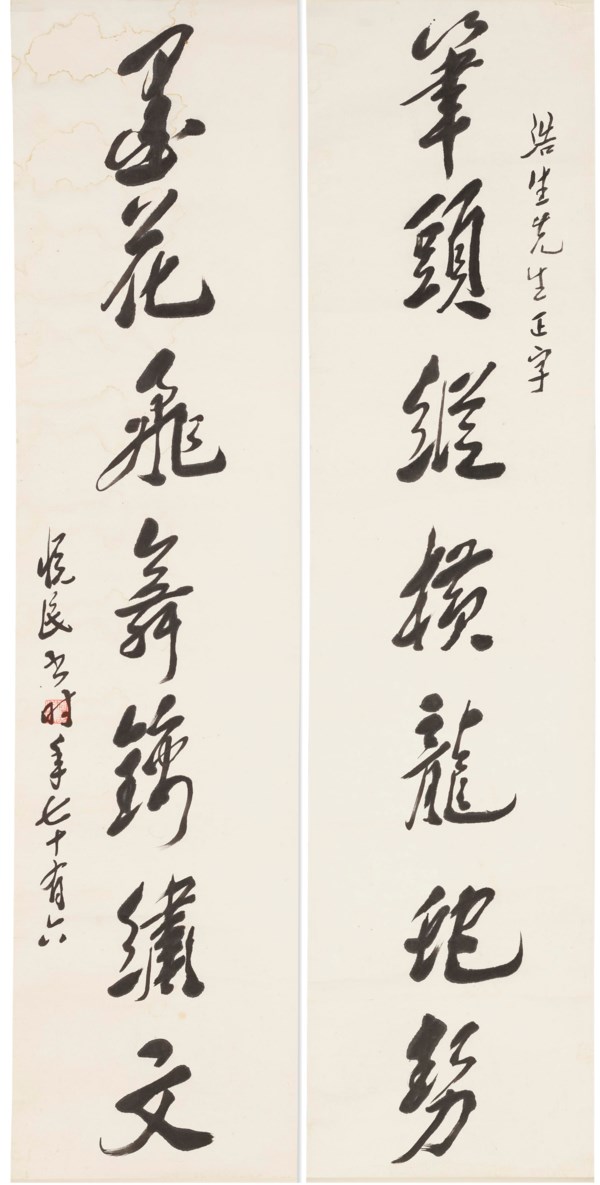 浩生先生正字
筆頭縱橫龍蛇勢
墨花飛舞錦繡文
悅民書時年七十有六